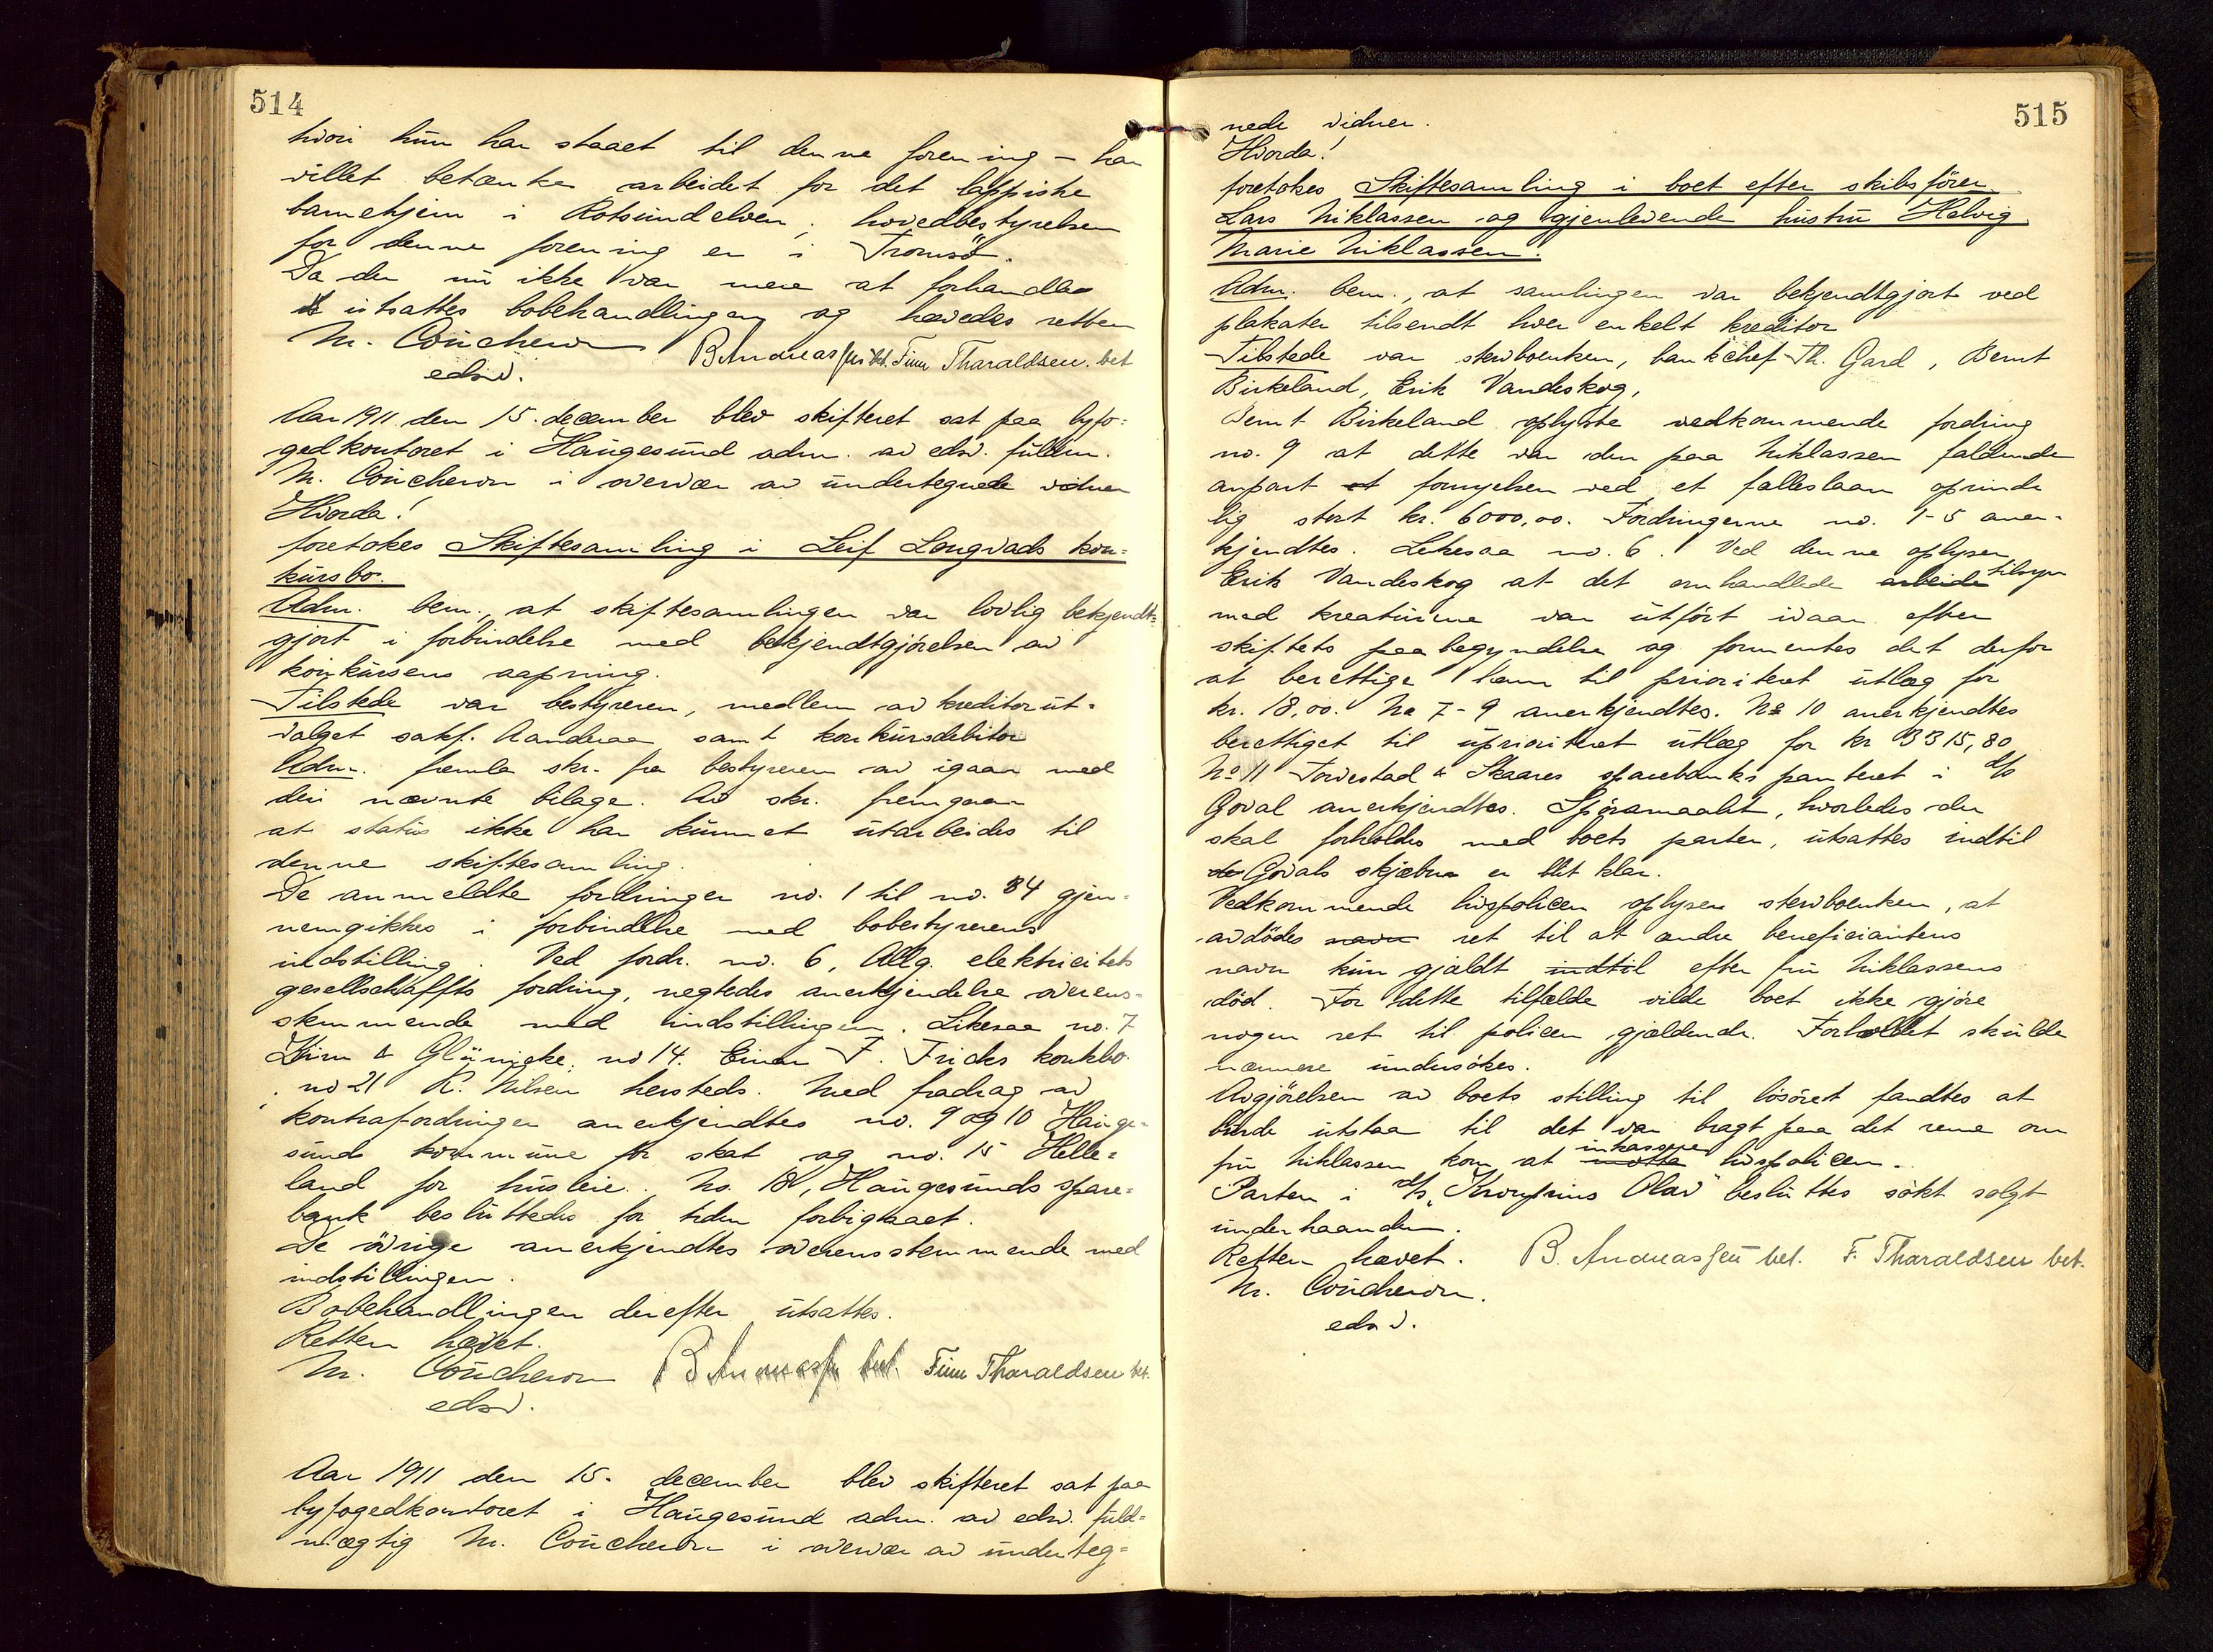 514
hvori hun har staaet til denne forening – har
villet betænke arbeidet for det lappiske
barnehjem i Rotsundelven; hovedbestyrelsen
for denne forening er i Tromsö.
Da der nu ikke var mere at forhandle
utsattes bobehandlingen og hævedes retten
M. Coucheron B. Andreassen bet. Finn Tharaldsen. bet
edsv.
Aar 1911 den 15. december blev skifteret sat paa byfo=
gedkontoret i Haugesund adm. av edsv. fuldm.
M. Coucheron i overvær av undertegnede vidner
Hvorda!
foretokes Skiftesamling i Leif Longvads kon=
kursbo.
Adm. bem., at skiftesamlingen var lovlig bekjendt=
gjort i forbindelse med bekjendtgjörelsen av
konkursens aapning.
Tilstede var bestyreren, medlem av kreditorut=
valget sakf. Aanderaa samt konkursdebitor
Adm. fremla skr. fra bestyreren av igaar med
dei nævnte bilage. Av skr. fremgaar
at status ikke har kunnet utarbeides til
denne skiftesamling.
De anmeldte fordringer no. 1 til no. 84 gjen=
nemgikkes i forbindelse med bobestyrerens
indstilling. Ved fordr. no. 6, Allg. elektricitets
gesellschaffts fordring, negtedes anerkjendelse overens=
stemmende med indstillingen. Likesaa no. 7
& Glänicke, no 14. Einar F. Frichs konkbo.
no 21 R. Nilsen hersteds. Med fradrag av
kontrafordringer anerkjendtes no. 9 og 10 Hauge=
sunds kommune for skat og no. 15 Helle=
land for husleie. No. 18, Haugesunds spare=
bank besluttedes for tiden forbigaaet.
De övrige anerkjendtes overensstemmende med
indstillingen.
Bobehandlingen derefter utsattes.
Retten hævet.
M. Coucheron B. Andreassen bet. Finn Tharaldsen bet.
edsv.
Aar 1911 den 15. december blev skifteret sat paa
byfogedkontoret i Haugesund adm. av edsv. fuld=
mægtig M. Coucheron i overvær av underteg=
515
nede vidner.
Hvorda!
foretokes Skiftesamling i boet efter skibsförer
Lars Niklassen og gjenlevende hustru Helvig
Marie Niklassen.
Adm. bem., at samlingen var bekjendtgjort ved
plakater tilsendt hver enkelt kreditor
Tilstede var sterboenken, bankchef Th. Gard, Bernt
Birkeland, Erik Vandeskog,
Bernt Birkeland oplyste vedkommende fordring
no. 9 at dette var den paa Niklassen faldende
anpart at fornyelsen ved et fælleslaan oprinde
lig stort kr. 6000,00. Fordringerne no. 1-5 aner=
kjendtes. Likesaa no. 6. Ved denne oplyser
Erik Vandeskog at det omhandlede arbeide tilsyn
med kreaturene var utfört ivaar efter
skiftets paabegyndelse og formentes det derfor
at berettige ham til prioritert utlæg for
kr. 18,00. No 7-9 anerkjendtes. No 10 anerkjendtes
berettiget til uprioritert utlæg for kr 3315,80
No 11 Torvestad & Skaares sparebanks panteret i d/s
Goval anerkjendtes. Spörsmaalet, hvorledes der
skal forholdes med boets parter, utsattes indtil
de Govals skjæbne er blit klar.
Vedkommende livspolicen oplyser sterboenken, at
avdödes navn ret til at ændre beneficiantens
navn kun gjaldt indtil efter fru Niklassens
död. For dette tilfælde vilde boet ikke gjöre
nogen ret til policen gjældende. Forholdet skulde
nærmere undersökes.
Avgjörelsen av boets stilling til lösöret fandtes at
burde utstaa til det var bragt paa det rene om
fru Niklassen kom at motta inkassere livspolicen.
Parten i d/s „Kronprins Olav" besluttes sökt solgt
underhaanden.
Retten hævet. B. Andreassen bet. F. Tharaldsen bet.
M. Coucheron.
edsv.